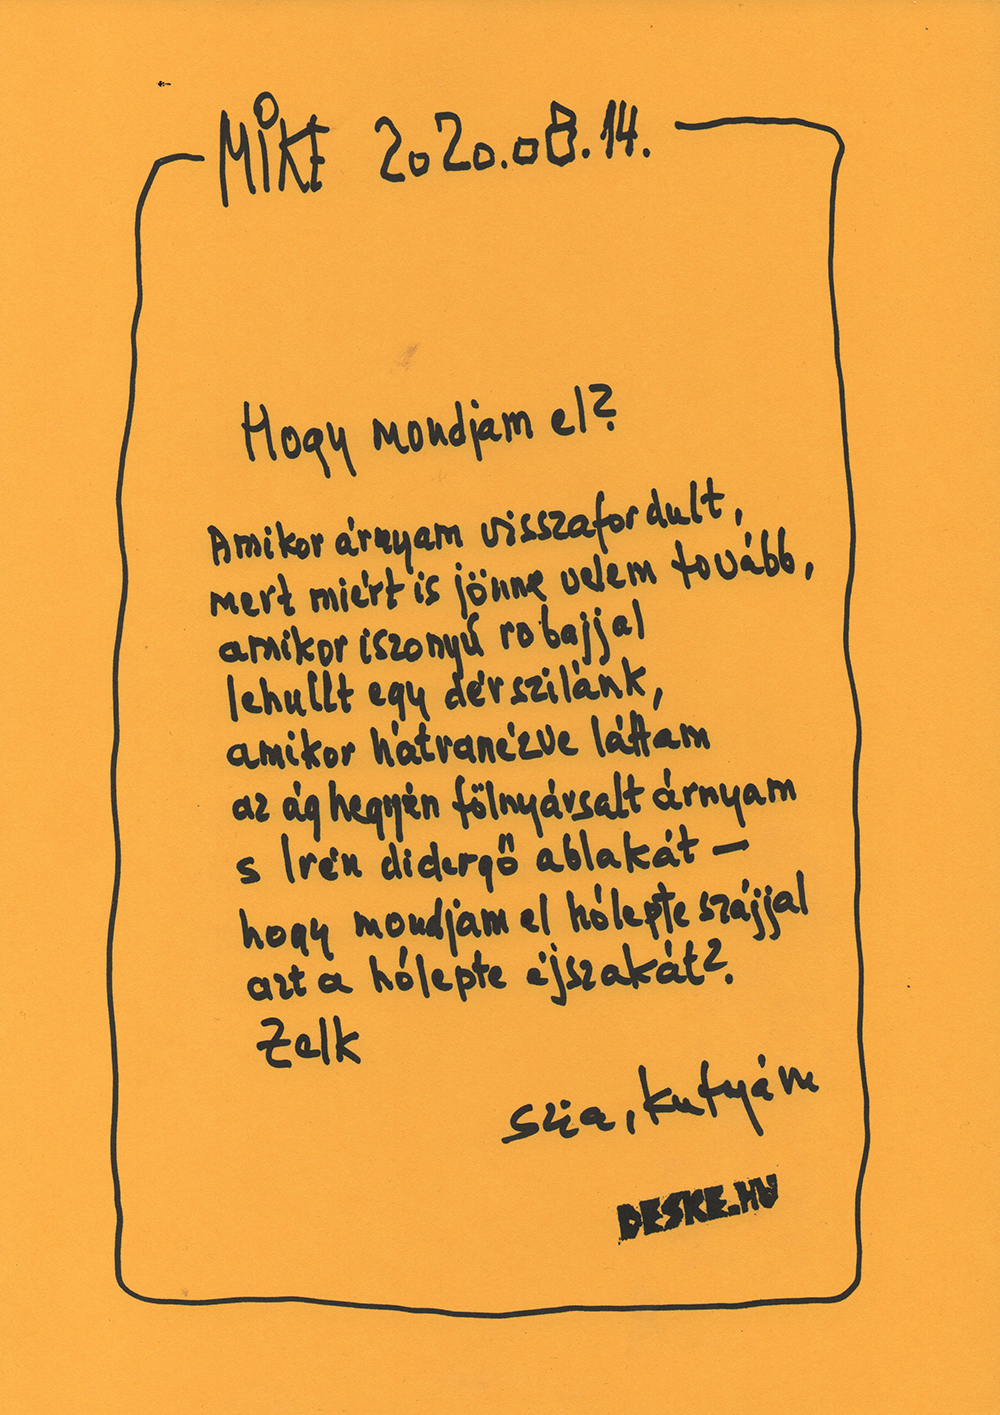 MIKE 2020.08.14.
Hogy mondjam el?
Amikor árnyam visszafordult,
mert miért is jönne velem tovább,
amikor iszonyú robajjal
lehullt egy dérszilánk,
amikor hátranézve láttam
az ág hegyén fölnyársalt árnyam
s Irén didergő ablakát –
hogy mondjam el hólepte szájjal
azt a hólepte éjszakát?
Zelk
Szia, kutyám
DESKE.HU